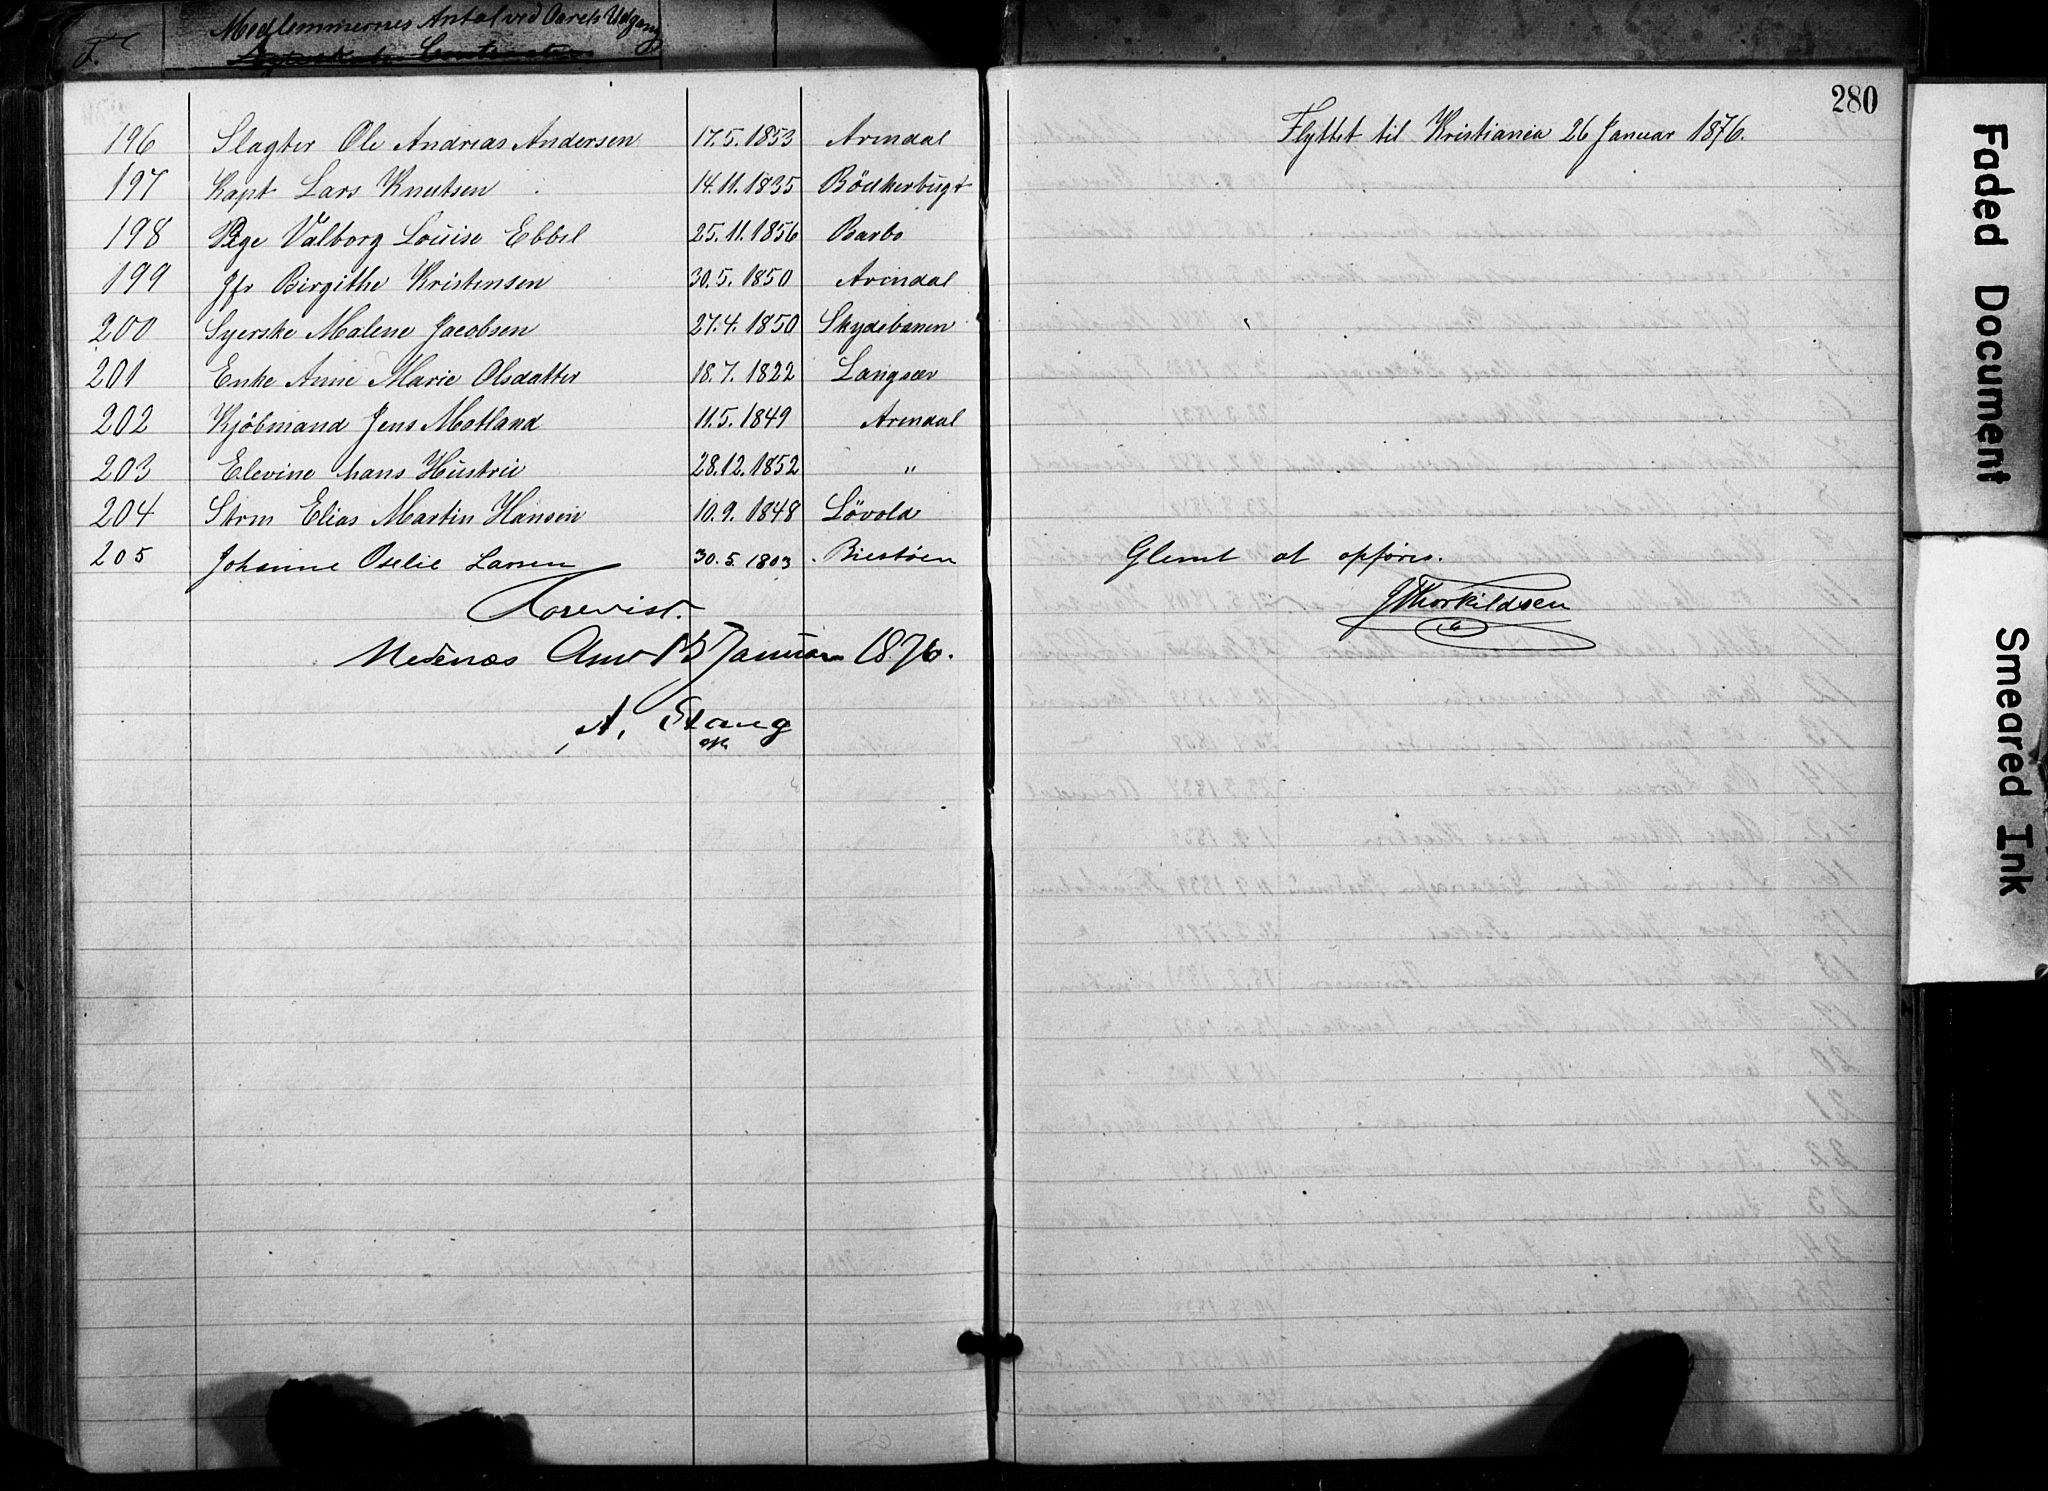 Medlemmernes Antal ved Aarets Udgang
280
196 Slagter Ole Andreas Andersen 17.5.1853 Arendal Flyttet til Kristiania 26 Januar 1876.
197 Kapt Lars Knutsen 14.11.1835 Bödkerbugt
198 Pige Valborg Louise Ebbel 25.11.1856 Barbo
199 Jfr Birgithe Kristensen 30.5.1850 Arendal
200 Syerske Malene Jacobsen 27.4.1850 Skydebanen
201 Enke Anne Marie Olsdatter 18.7.1822 Langsæv
202 Kjöbmand Jens Motland 11.5.1849 Arendal
203 Elevine hans Hustru 28.12.1852 "
204 Strm Elias Martin Hansen 10.9.1848 Lövold
205 Johanne Oselie Larsen 30.5.1803 Biestöen Glemt at opføres.
JThorkildsen
Forevist.
Nedenæs Amt 15 Januar 1876.
A. Stang
Faded Document
Smeared Ink